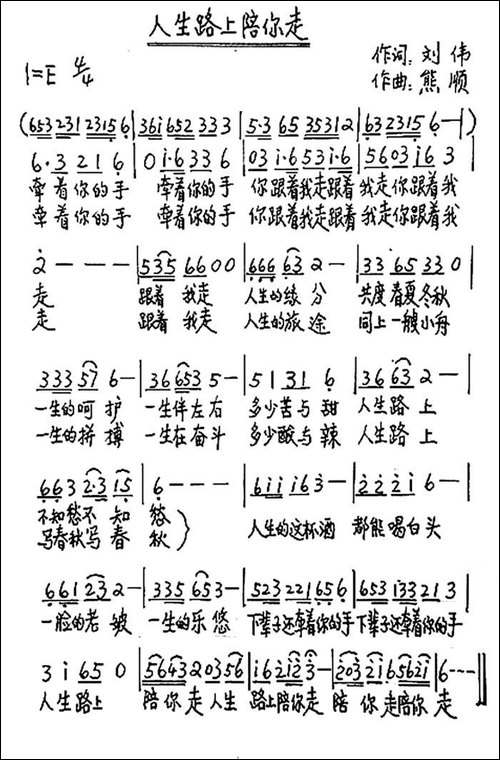 人生路上陪你走
作词：刘伟
1=E 4/4
作曲：熊顺
(653 231 2315 6|36i 652 333|5·3 65 35312|632315 6-|)
6·3 21 6|0 i·6 33 6|03 i·6 53 i·6|5603 i6 3|
牵着你的手 牵着你的手 你跟着我走跟着我走你跟着我
牵着你的手 牵着你的手 你跟着我走跟着我走你跟着我
2---|535 6600|666 63 2-|33 65 33 0|
走 跟着我走 人生的缘分 共度春夏冬秋
走 跟着我走 人生的旅途 同上一艘小舟
333 57 6-|36 653 5-|51 31 6|36 63 2-|
一生的呵护 一生伴左右 多少苦与甜 人生路上
一生的拼搏 一生在奋斗 多少酸与辣 人生路上
663 2·3 15|6---|6iii63-|222i 6-|
不知愁不知愁 人生的这杯酒 都能喝白头
写春秋写春秋
661 23 2-|335 653-|523 221656|653 i33213|
一脸的老皱 一生的乐悠 下辈子还牵着你的手下辈子还牵着你的手
3 i 65 0|5643 20356|i62i23-|203216562i|6---||
人生路上 陪你走人生路上陪你走 陪你走陪你走